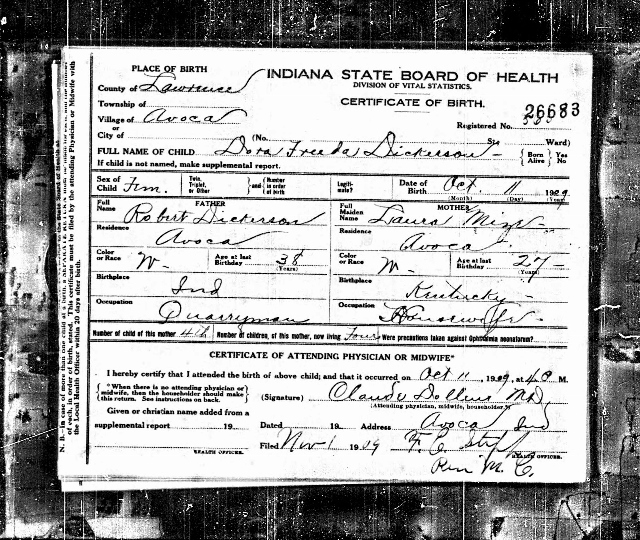 PLACE OF BIRTH
INDIANA STATE BOARD OF HEALTH
DIVISION OF VITAL STATISTICS.
CERTIFICATE OF BIRTH.
County of Lawrence
Township of
Village of Avoca
or
City of
(No. St. Ward)
Registered No.
26683
FULL NAME OF CHILD Dora Freeda Dickerson
{Born Alive} {Yes No
If child is not named, make supplemental report.
Sex of Child Fem.
Twin, Triplet, or Other } and { Number in order of birth
Legitimate?
Date of Birth Oct. 11 1909
(Month) (Day) (Year)
FATHER
Full Name Robert Dickerson
Residence Avoca
Color or Race W- Age at last Birthday 38 (Years)
Birthplace Ind
Occupation Quarryman
MOTHER
Full Maiden Name Laura Mize
Residence Avoca
Color or Race W- Age at last Birthday 27 (Years)
Birthplace Kentucky
Occupation Housewife
Number of child of this mother 4th Number of children, of this mother, now living four Were precautions taken against Ophthalmia neonatorum?
CERTIFICATE OF ATTENDING PHYSICIAN OR MIDWIFE*
I hereby certify that I attended the birth of above child; and that it occurred on Oct 11 1909, at M.
{*When there is no attending physician or midwife, then the householder should make this return. See instructions on back.}
(Signature) Claude Dollins MD
(Attending physician, midwife, householder.*)
Given or christian name added from a
supplemental report 19
HEALTH OFFICER.
Dated 19 Address Avoca Ind
Filed Nov-1 1909 F. C.
HEALTH OFFICER.
N. B.—In case of more than one child at a birth, a SEPARATE RETURN must be made
of each, in order of birth, stated. This certificate must be filed by the attending Physician or Midwife with
the Local Health Officer within 20 days after birth.